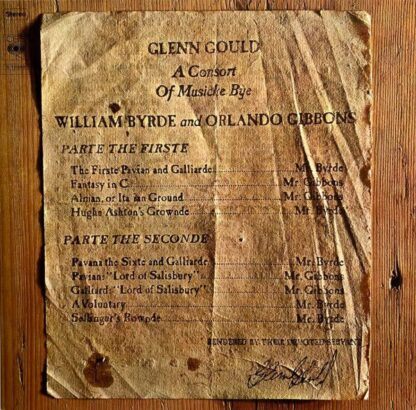 Stereo
CBS
GLENN GOULD
A Consort
Of Musicke Bye
WILLIAM BYRDE and ORLANDO GIBBONS
PARTE THE FIRSTE
The Firste Pavian and Galliarde Mr. Byrde
Fantasy in C Mr. Gibbons
Alman, or Italian Ground Mr. Gibbons
Hughe Ashton's Grownde Mr. Byrde
PARTE THE SECONDE
Pavana the Sixte and Galliarde Mr. Byrde
Pavian: "Lord of Salisbury" Mr. Gibbons
Galliard: "Lord of Salisbury" Mr. Gibbons
A Voluntary Mr. Byrde
Sellinger's Rownde Mr. Byrde
RENDERED BY THEIR DEVOTED SERVANT
Glenn Gould